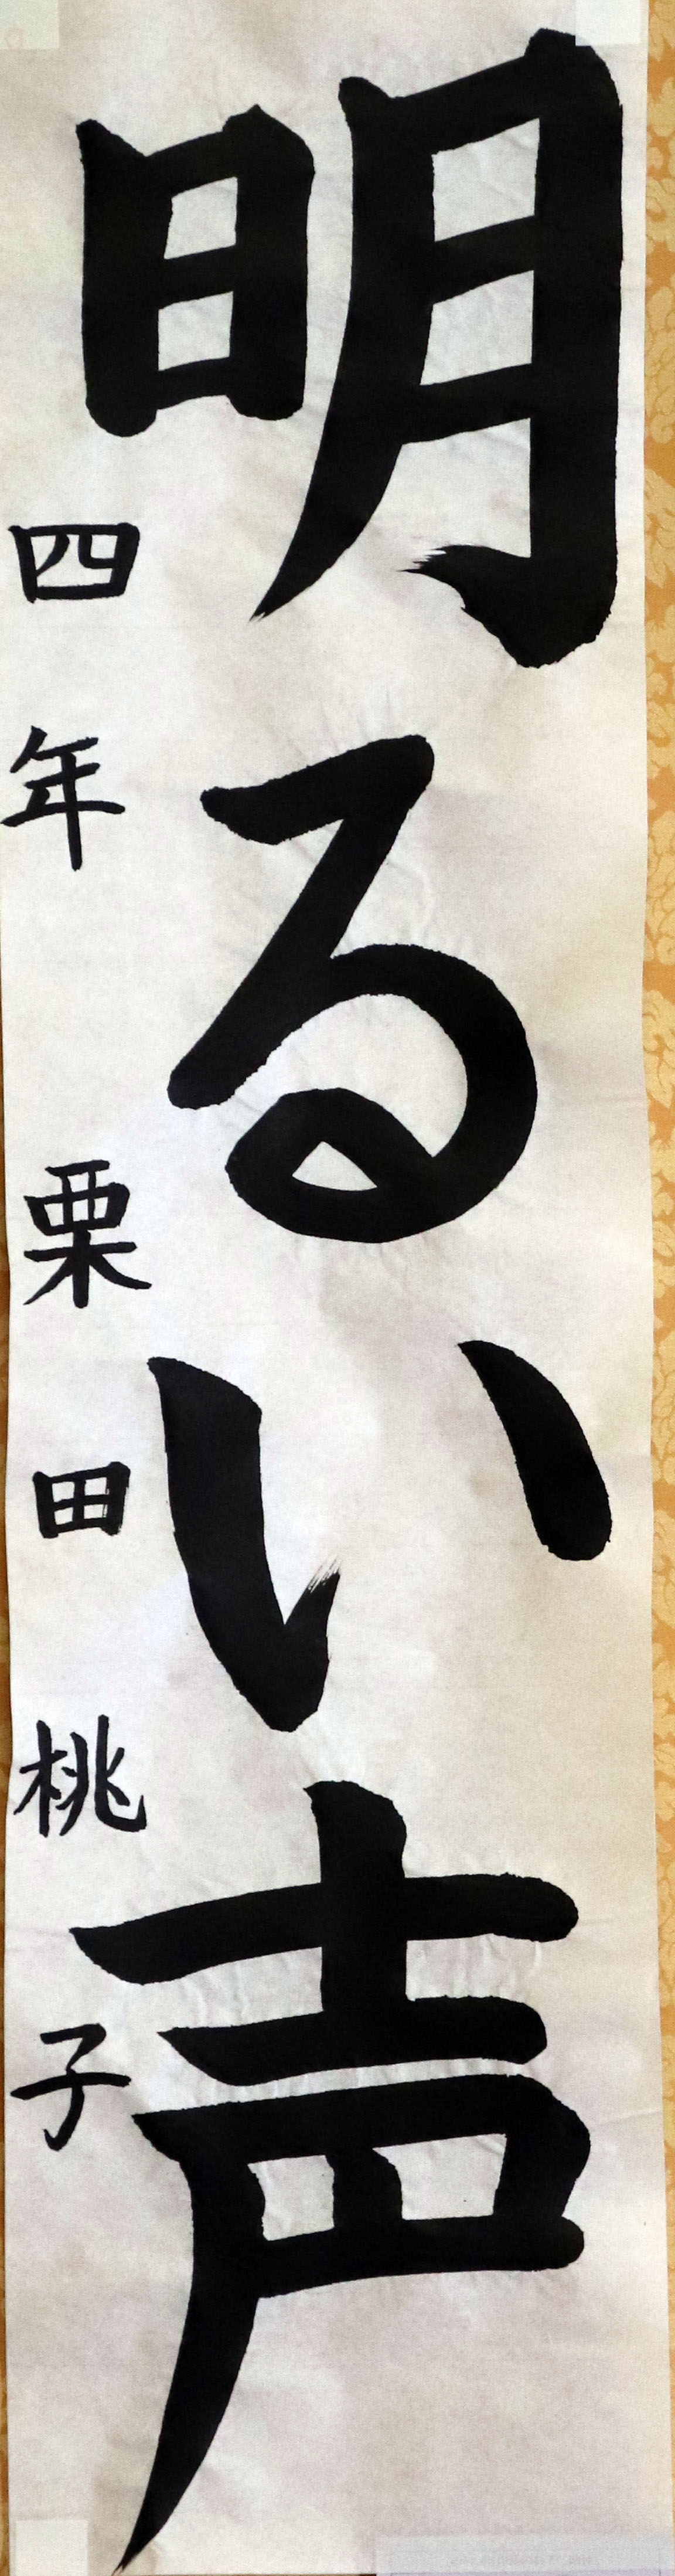 明るい声
四年 栗田桃子